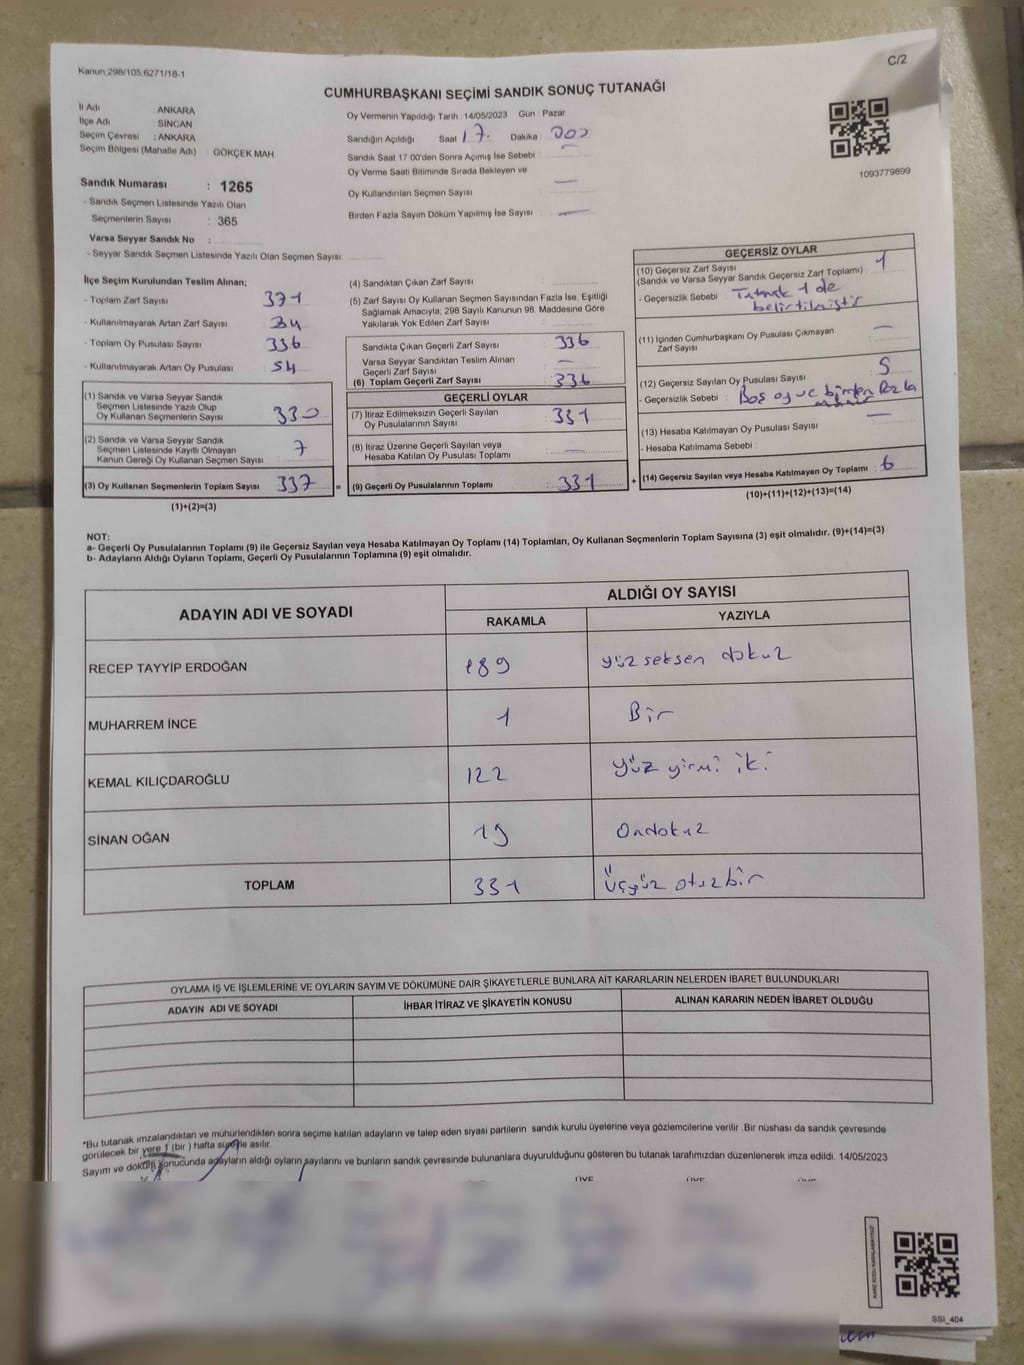 Kanun 298/105,6271/18-1
C/2
CUMHURBAŞKANI SEÇİMİ SANDIK SONUÇ TUTANAĞI
İl Adı ANKARA
İlçe Adı SİNCAN
Seçim Çevresi : ANKARA
Seçim Bölgesi (Mahalle Adı) GÖKÇEK MAH
Sandık Numarası : 1265
- Sandık Seçmen Listesinde Yazılı Olan
Seçmenlerin Sayısı : 365
Varsa Seyyar Sandık No :
- Seyyar Sandık Seçmen Listesinde Yazılı Olan Seçmen Sayısı:
Oy Vermenin Yapıldığı Tarih : 14/05/2023 Gün : Pazar
Sandığın Açıldığı Saat 17 Dakika : 00
Sandık Saat 17 00'den Sonra Açımış İse Sebebi :
Oy Verme Saati Bitiminde Sırada Bekleyen ve
Oy Kullandırılan Seçmen Sayısı : —
Birden Fazla Sayım Döküm Yapılmış İse Sayısı : —
1093779899
İlçe Seçim Kurulundan Teslim Alınan;
- Toplam Zarf Sayısı 371
- Kullanılmayarak Artan Zarf Sayısı 34
- Toplam Oy Pusulası Sayısı
- Kullanılmayarak Artan Oy Pusulası 54
(1) Sandık ve Varsa Seyyar Sandık
Seçmen Listesinde Yazılı Olup
Oy Kullanan Seçmenlerin Sayısı 330
(2) Sandık ve Varsa Seyyar Sandık
Seçmen Listesinde Kayıtlı Olmayan
Kanun Gereği Oy Kullanan Seçmen Sayısı : 7
(3) Oy Kullanan Seçmenlerin Toplam Sayısı 337
(1)+(2)=(3)
=
(4) Sandıktan Çıkan Zarf Sayısı :
(5) Zarf Sayısı Oy Kullanan Seçmen Sayısından Fazla İse, Eşitliği
Sağlamak Amacıyla; 298 Sayılı Kanunun 98. Maddesine Göre
Yakılarak Yok Edilen Zarf Sayısı :
Sandıkta Çıkan Geçerli Zarf Sayısı : 336
Varsa Seyyar Sandıktan Teslim Alınan
Geçerli Zarf Sayısı : —
(6) Toplam Geçerli Zarf Sayısı : 336
GEÇERLİ OYLAR
(7) İtiraz Edilmeksizin Geçerli Sayılan
Oy Pusulalarının Sayısı : 331
(8) İtiraz Üzerine Geçerli Sayılan veya
Hesaba Katılan Oy Pusulası Toplamı : —
(9) Geçerli Oy Pusulalarının Toplamı : 331
+
GEÇERSİZ OYLAR
(10) Geçersiz Zarf Sayısı : 1
(Sandık ve Varsa Seyyar Sandık Geçersiz Zarf Toplamı)
- Geçersizlik Sebebi : Tutanak 1 de
belirtilmiştir
(11) İçinden Cumhurbaşkanı Oy Pusulası Çıkmayan
Zarf Sayısı : —
(12) Geçersiz Sayılan Oy Pusulası Sayısı : 5
- Geçersizlik Sebebi : Boş oy ve birden fazla
(13) Hesaba Katılmayan Oy Pusulası Sayısı : —
- Hesaba Katılmama Sebebi :
(14) Geçersiz Sayılan veya Hesaba Katılmayan Oy Toplamı : 6
(10)+(11)+(12)+(13)=(14)
NOT:
a- Geçerli Oy Pusulalarının Toplamı (9) ile Geçersiz Sayılan veya Hesaba Katılmayan Oy Toplamı (14) Toplamları, Oy Kullanan Seçmenlerin Toplam Sayısına (3) eşit olmalıdır. (9)+(14)=(3)
b- Adayların Aldığı Oyların Toplamı, Geçerli Oy Pusulalarının Toplamına (9) eşit olmalıdır.
ADAYIN ADI VE SOYADI
ALDIĞI OY SAYISI
RAKAMLA YAZIYLA
RECEP TAYYİP ERDOĞAN 189 yüz seksen dokuz
MUHARREM İNCE 1 Bir
KEMAL KILIÇDAROĞLU 122 yüz yirmi iki
SİNAN OĞAN 19 Ondokuz
TOPLAM 331 üçyüz otuzbir
OYLAMA İŞ VE İŞLEMLERİNE VE OYLARIN SAYIM VE DÖKÜMÜNE DAİR ŞİKAYETLERLE BUNLARA AİT KARARLARIN NELERDEN İBARET BULUNDUKLARI
ADAYIN ADI VE SOYADI İHBAR İTİRAZ VE ŞİKAYETİN KONUSU ALINAN KARARIN NEDEN İBARET OLDUĞU
*Bu tutanak imzalandıktan ve mühürlendikten sonra seçime katılan adayların ve talep eden siyasi partilerin sandık kurulu üyelerine veya gözlemcilerine verilir .Bir nüshası da sandık çevresinde
görülecek bir yere 1 (bir ) hafta süreyle asılır.
Sayım ve döküm sonucunda adayların aldığı oyların sayılarını ve bunların sandık çevresinde bulunanlara duyurulduğunu gösteren bu tutanak tarafımızdan düzenlenerek imza edildi. 14/05/2023
ÜYE ÜYE ÜYE
SSI_404